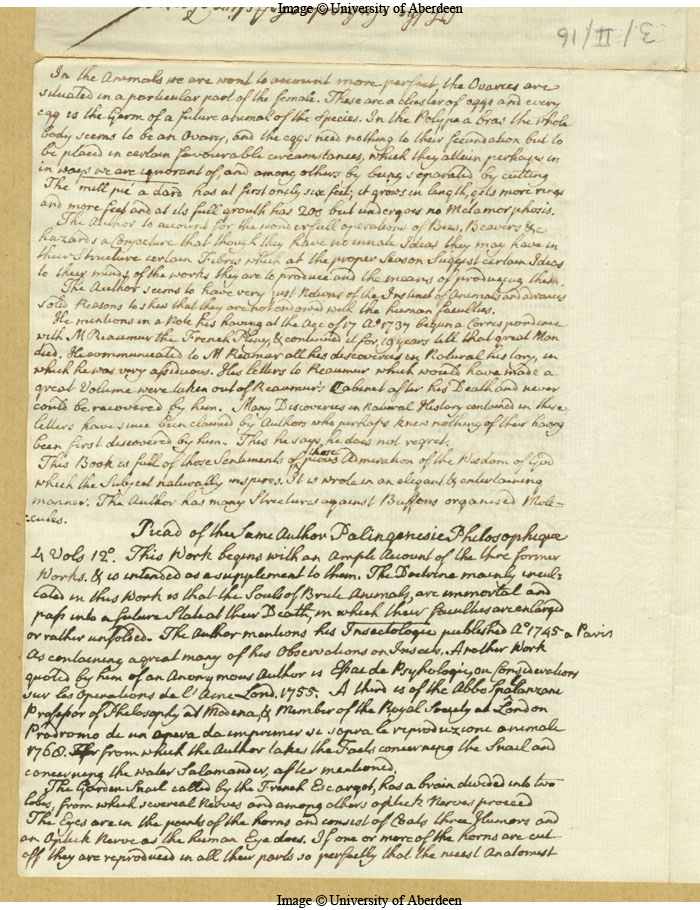 Image © University of Aberdeen
3/II/16
In the Animals we are wont to account more perfect, the Ovaries are
situated in a particular part of the female. These are a cluster of eggs and every
egg is the Germ of a future animal of the Species. In the Polype a bras the whole
body seems to be an Ovary, and the eggs need nothing to their fecundation but to
be placed in certain favourable circumstances, which they attein perhaps in
in ways we are ignorant of, and among others by being separated by cutting
The mille pié a dard has at first only six feet, it grows in length, gets more rings
and more feet and at its full growth has 200 but undergoes no Metamorphosis.
The Author to account for the wonderfull operations of Bees, Beavers &c
hazards a Conjecture that though they have no innate Ideas they may have in
their Structure certain Fibres which at the proper Season Suggest certain Ideas
to their minds, of the works they are to produce and the means of producing them.
The Author seems to have very just Notions of the Instinct of Animals and advances
solid Reasons to shew that they are not endowed with the human faculties.
He mentions in a Note his having at the Age of 17 Ao 1737 begun a Correspondence
with M Reaumur the French Pliny, & continued it for 19 years till that great Man
died. He communicated to M Reamur all his discoveries in Natural history, in
which he was very assiduous. His letters to Reaumur which would have made a
great Volume were taken out of Reaumur's Cabinet after his Death and never
could be recovered by him. Many Discoveries in Natural History contained in these
letters have since been claimed by Authors who perhaps knew nothing of their having
been first discovered by him. This he says he does not regret.
This Book is full of those Sentiments of those pious Admiration of the Wisdom of God
which the Subject naturally inspires. It is wrote in an elegant & entertaining
manner. The Author has many Strictures against Buffons organised Mole-
:cules.
Read of the Same Author Palingenesie Philosophique
4 Vols 12o. This Work begins with an Ample Account of the thre former
Works. & is intended as a supplement to them. The Doctrine mainly incul:
cated in this Work is that the Souls of Brute Animals, are immortal and
pass into a future State at their Death, in which their faculties are enlarged
or rather unfolded. The Author mentions his Insectologie published Ao 1745 a Paris
As containing a great many of his Observations on Insects. Another Work
quoted by him of an Anonymous Author is Essai de Psychologie, ou Considerations
sur les Operations de l'Ame Lond. 1755. A third is of the Abbo Spalanzane
Professor of Philosophy at Modena, & Member of the Royal Society at London
Prodromo de un opera da imprimer si sopra le reproduzione animale
1768. from which the Author takes the Facts concerning the Snail and
concerning the water Salamander, after mentioned.
The Garden Snail called by the French Escargot, has a brain divided into two
lobes, from which several Nerves and among others optick Nerves proceed
The Eyes are in the points of the horns and consist of Coats three Humors and
an Optick Nerve as the human Eye does. If one or more of the horns are cut
off they are reproduced in all their parts so perfectly that the nicest Anatomist
Image © University of Aberdeen